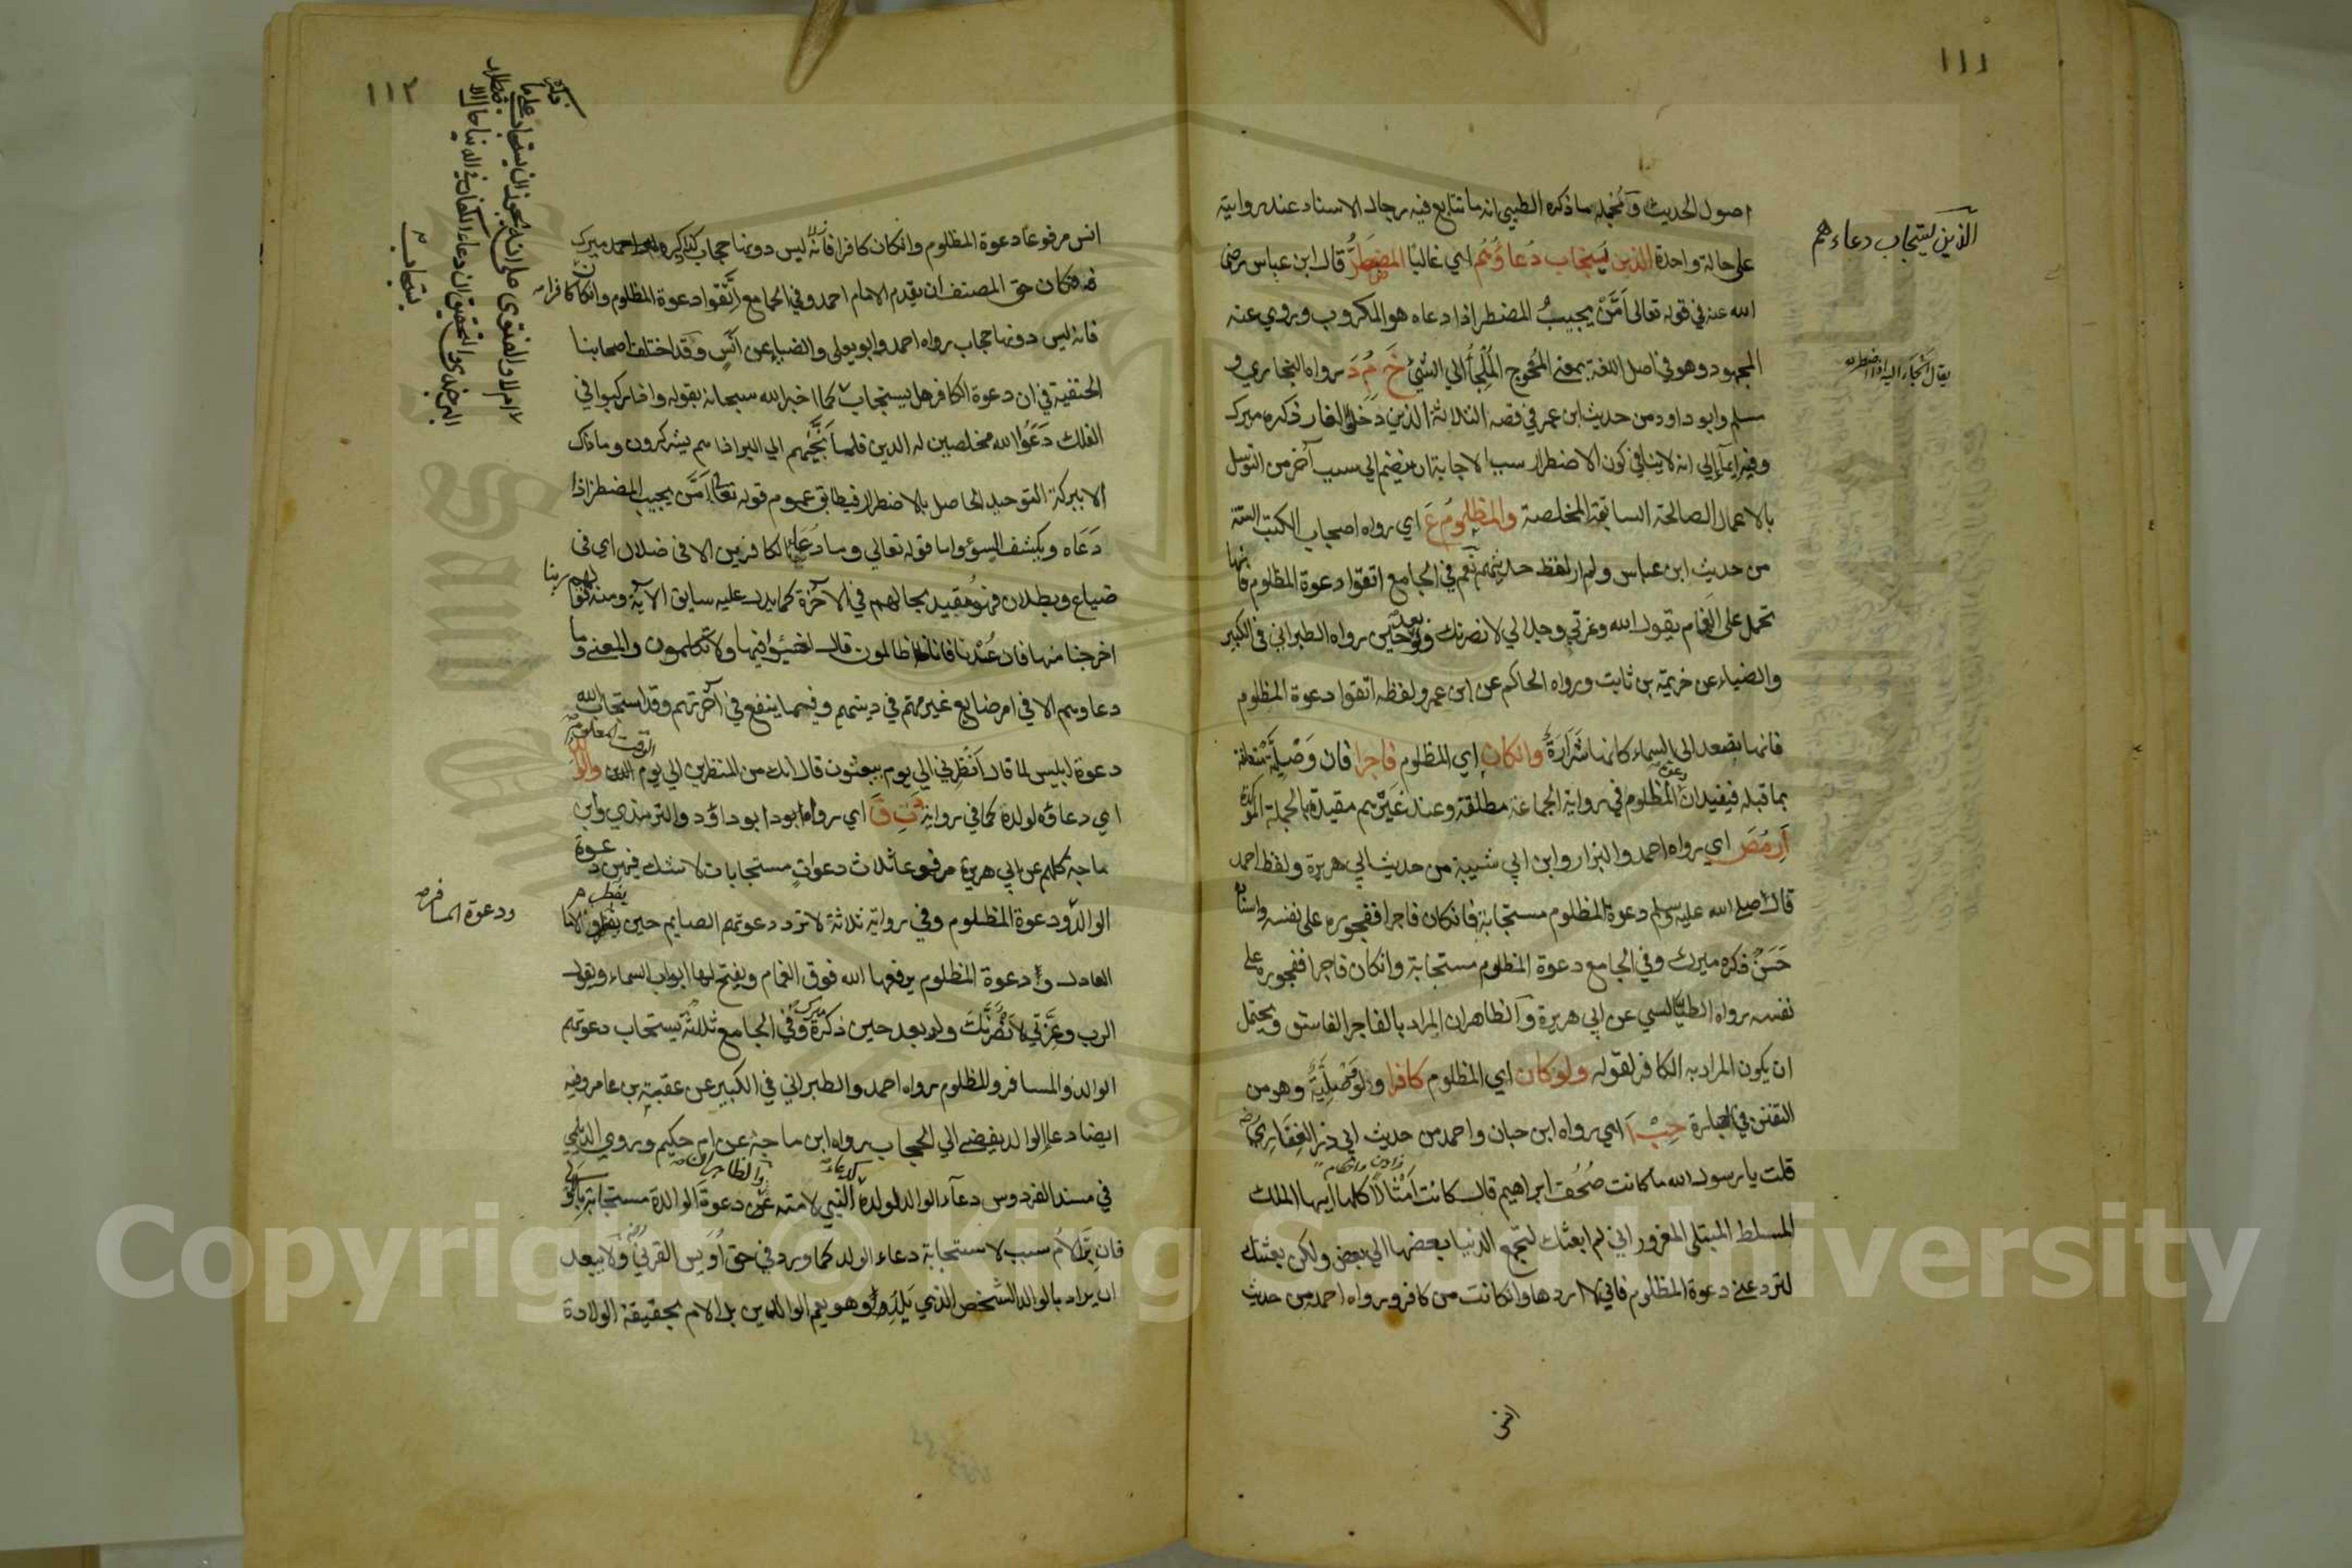 ١١١
الذين يستجاب دعاءهم
اصول الحديث ومجمله ما ذكره الطيبي انه ما تتابع فيه رجال الاسناد عند روايته
على حالة واحدة الذين يستجاب دعاؤهم اي غالبا المضطر قال ابن عباس رضى
الله عنه في قوله تعالى امن يجيب المضطر اذا دعاه هو المكروب وروي عنه
المجهود وهو في اصل اللغة بمعنى المحوج الملجأ الي الشئ خ م د رواه البخاري و
يقال الجأه اليه اذا اضطره
مسلم وابو داود من حديث ابن عمر في قصة الثلاثة الذين دخلوا الغار ذكره ميرك
وفيه ايمأ الي انه لا ينافي كون الاضطرار سببا لاجابة ان ينضم الي سبب آخر من التوسل
بالاعمال الصالحة السابقة المخلصة والمظلوم ع اي رواه اصحاب الكتب الستة
من حديث ابن عباس ولم ار لفظ حديثهم نعم في الجامع اتقوا دعوة المظلوم فانها
تحمل على الغمام يقول الله وعزتي وجلالي لانصرنك ولو بعد حين رواه الطبراني في الكبير
والضياء عن خزيمة بن ثابت ورواه الحاكم عن ابن عمر ولفظه اتقوا دعوة المظلوم
فانها تصعد الى السماء كانها شرارة وان كان اي المظلوم فاجرا فان وصلية متعلقة
بما قبله فيفيد ان دعوة المظلوم في رواية الجماعة مطلقة وعند غيرهم مقيدة بالجملة المؤكدة
ا ر مص اي رواه احمد والبزار وابن ابي شيبة من حديث ابي هريرة ولفظ احمد
قال صلى الله عليه وسلم دعوة المظلوم مستجابة فان كان فاجرا ففجوره على نفسه واسناده
حسن ذكره ميرك وفي الجامع دعوة المظلوم مستجابة وان كان فاجرا ففجوره على
نفسه رواه الطيالسي عن ابي هريرة والظاهر ان المراد بالفاجر الفاسق ويحتمل
ان يكون المراد به الكافر لقوله ولو كان اي المظلوم كافرا ولو وصلية وهو من
التفنن في العبارة حب آ اي رواه ابن حبان واحمد من حديث ابي ذر الغفاري
قلت يا رسول الله ما كانت صحف ابراهيم قال كانت امثالا كلها ايها الملك
المسلط المبتلى المغرور اني لم ابعثك لتجمع الدنيا بعضها الي بعض ولكن بعثتك
لترد عني دعوة المظلوم فاني لا اردها وان كانت من كافر ورواه احمد من حديث
انس
١١٢
انس مرفوعا دعوة المظلوم وان كان كافرا فانه ليس دونها حجاب
فكان حق المصنف ان يقدم الامام احمد وفي الجامع اتقوا دعوة المظلوم وان كان كافرا
فانه ليس دونها حجاب رواه احمد وابو يعلى والضياء عن انس وقد اختلف اصحابنا
الحنفية في ان دعوة الكافر هل يستجاب كما اخبر الله سبحانه بقوله واذا ركبوا في
الفلك دعوا الله مخلصين له الدين فلما نجيهم الي البر اذا هم يشركون وما ذاك
الا ببركة التوحيد الحاصل بالاضطرار فيطابق عموم قوله تعالى امن يجيب المضطر اذا
دعاه ويكشف السوء واما قوله تعالي وما دعاء الكافرين الا في ضلال اي في
ضياع وبطلان فهو مقيد بحالهم في الآخرة كما يدل عليه سابق الآية ومنه قولهم ربنا
اخرجنا منها فان عدنا فانا ظالمون قال اخسئوا فيها ولا تكلمون والمعنى وما
دعاوهم الا في امر ضايع غير مهم في دينهم وفيما ينفع في آخرتهم وقد استجاب الله
دعوة ابليس لما قال انظرني الي يوم يبعثون قال انك من المنظرين الي يوم الوقت المعلوم والوالد
اي دعاؤه لولده كما في رواية د ت ق اي رواه ابو داؤد والترمذي وابن
ماجة كلهم عن ابي هريرة مرفوعا ثلاث دعوات مستجابات لا شك فيهن دعوة
الوالد ودعوة المظلوم وفي رواية ثلاثة لا ترد دعوتهم الصايم حين يفطر والامام
ودعوة المسافر
العادل ودعوة المظلوم يرفعها الله فوق الغمام ويفتح لها ابواب السماء ويقول
الرب وعزتي لانصرنك ولو بعد حين ذكره ميرك وفي الجامع ثلاثة يستجاب دعوتهم
الوالد والمسافر والمظلوم رواه احمد والطبراني في الكبير عن عقبة بن عامر وفيه
ايضا دعاء الوالد يفضي الي الحجاب رواه ابن ماجة عن ام حكيم وروي الديلمي
في مسند الفردوس دعآء الوالد لولده كدعاء النبي لامته والظاهر ان دعوة الوالدة مستجابة بالاولى
فان بر الام سبب لاستجابة دعاء الولد كما ورد في حق اويس القرني ولا يبعد
ان يراد بالوالد الشخص الذي يلد وهو يعم الوالدين بل الام بحقيقة الولادة
Copyright © King Saud University